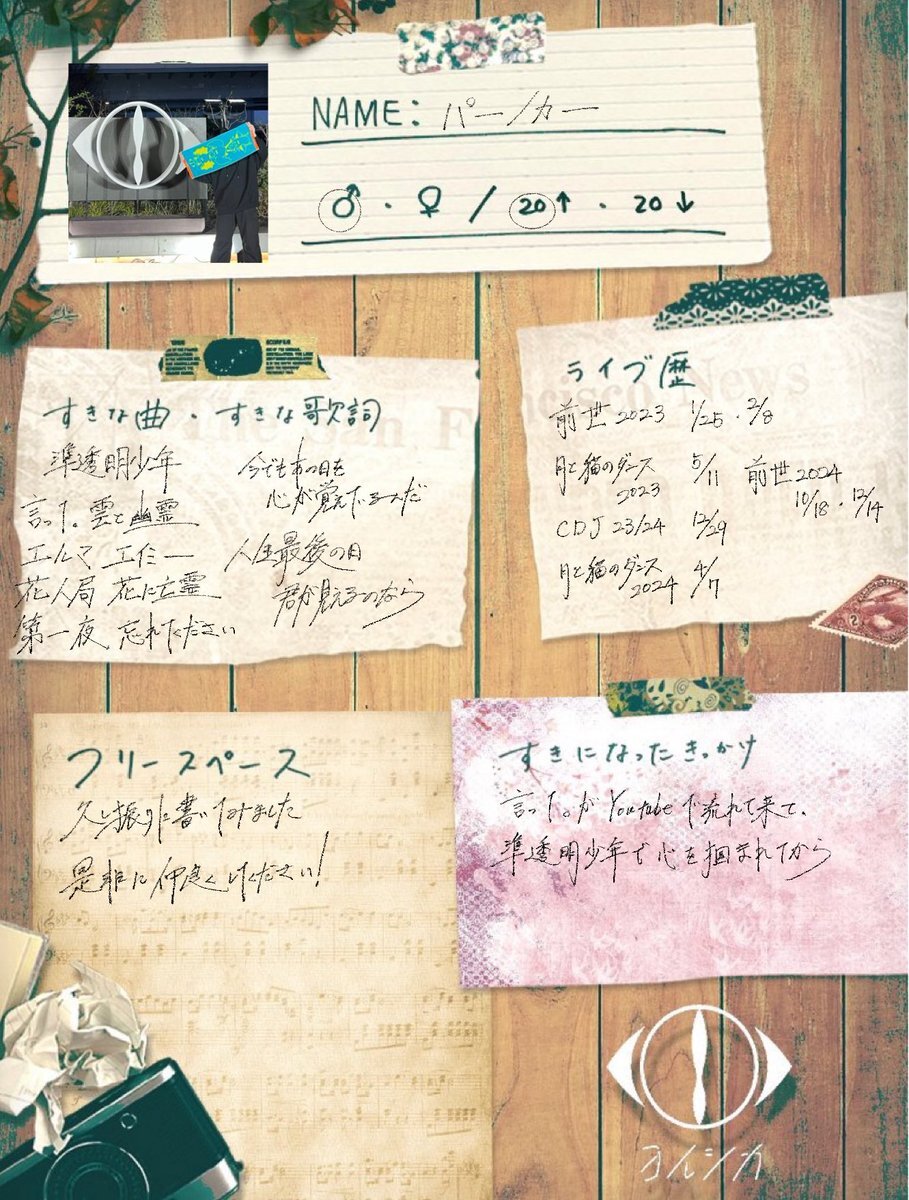 NAME: パーカー
♂ ・ ♀ / 20↑ ・ 20↓
すきな曲・すきな歌詞
準透明少年
言って。 雲と幽霊
エルマ エイミー
花人局 花に亡霊
第一夜 忘れてください
今でもあの日を
心が覚えてるんだ
人生最後の日
君が見えるのなら
ライブ歴
前世2023 1/25・2/8
月と猫のダンス 5/11
2023
CDJ 23/24 12/29
月と猫のダンス 4/7
2024
前世2024
10/18・12/14
The San Francisco News
フリースペース
久し振りに書いてみました
是非に仲良くしてください!
すきになったきっかけ
言って。がYoutubeで流れて来て、
準透明少年で心を掴まれてから
ヨルシカ